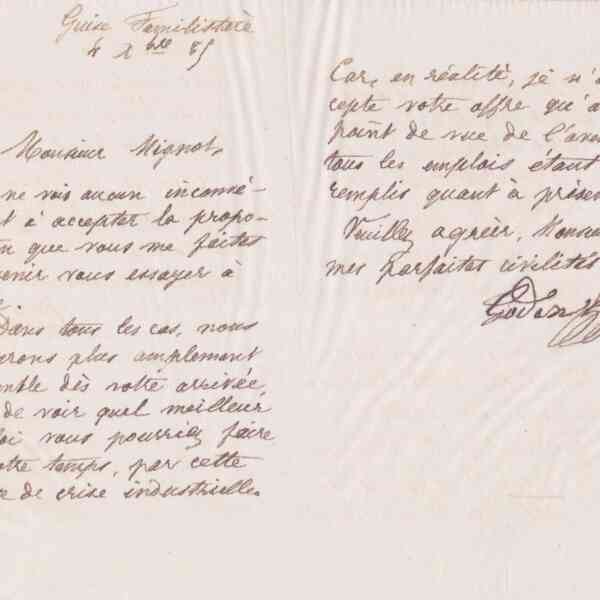 Guise Familistère
4 Xbre 85
Monsieur Mignot,
ne vois aucun inconvé-
t à accepter la propo-
n que vous me faites
venir vous essayer à
Dans tous les cas, nous
rons plus amplement
mble dès votre arrivée
de voir quel meilleur
oi vous pourriez faire
otre temps, par cette
e de crise industrielle.
Car, en réalité, je n'a
cepte votre offre qu'a
point de vue de l'ave
tous les emplois étant
remplis quant à présen
Veuillez agréer, Monsieu
mes parfaites civilités
Godin